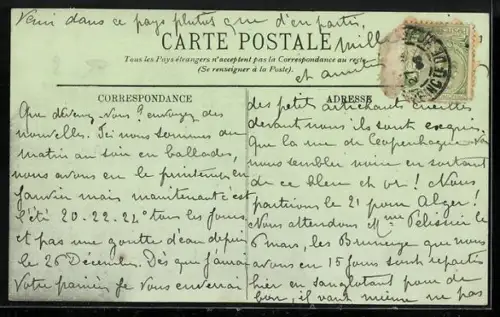 Venir dans ce pays plutôt que d'en partir.
mille
et amitiés
CARTE POSTALE
Tous les Pays étrangers n'acceptent pas la Correspondance au recto
(Se renseigner à la Poste).
CORRESPONDANCE
Que devenez vous ? envoyez des
nouvelles. Ici nous sommes du
matin au soir en ballades,
nous avons eu le printemps en
Janvier mais maintenant c'est
l'été 20-22-24° tous les jours
et pas une goutte d'eau depuis
le 26 Décembre. Dès que j'aurai
votre panier je vous enverrai
ADRESSE
des petits artichauts cueillis
devant nous ils sont exquis.
Que la rue de Copenhague va
nous sembler noire en sortant
de ce bleu et or ! Nous
partions le 21 pour Alger !
Nous attendons Mme Pelissier le
6 mars, les que nous
avons eu 15 jours sont repartis
hier en sanglotant pour de
bon, il vaut mieux ne pas